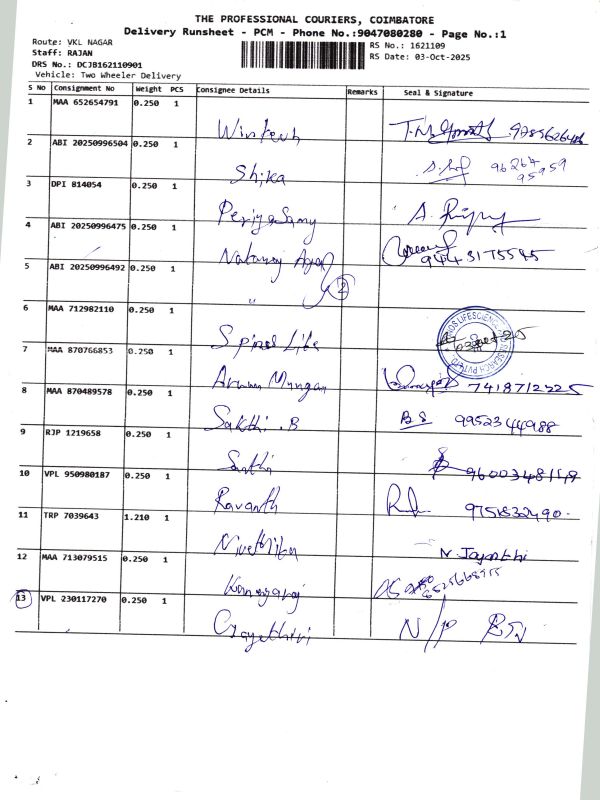 THE PROFESSIONAL COURIERS, COIMBATORE
Delivery Runsheet - PCM - Phone No.:9047080280 - Page No.:1
Route: VKL NAGAR
RS No.: 1621109
Staff: RAJAN
RS Date: 03-Oct-2025
DRS No.: DCJB162110901
Vehicle: Two Wheeler Delivery
S No Consignment No Weight PCS Consignee Details Remarks Seal & Signature
1 MAA 652654791 0.250 1
2 ABI 20250996504 0.250 1 Shika 96264 95959
3 DPI 814054 0.250 1 PeriyaSamy A.
4 ABI 20250996475 0.250 1 9443175545
5 ABI 20250996492 0.250 1 " 2
6 MAA 712982110 0.250 1 Spinal Life
7 MAA 870766853 0.250 1 Arun Murugan 7418712225
8 MAA 870489578 0.250 1 Sakthi .B BS 9952344988
9 RJP 1219658 0.250 1 Santhi 9600348149
10 VPL 950980187 0.250 1 Ravanth 9751832490
11 TRP 7039643 1.210 1 N. Jayanthi
12 MAA 713079515 0.250 1 Kanagaraj
13 VPL 230117270 0.250 1 Gayathiri N/P